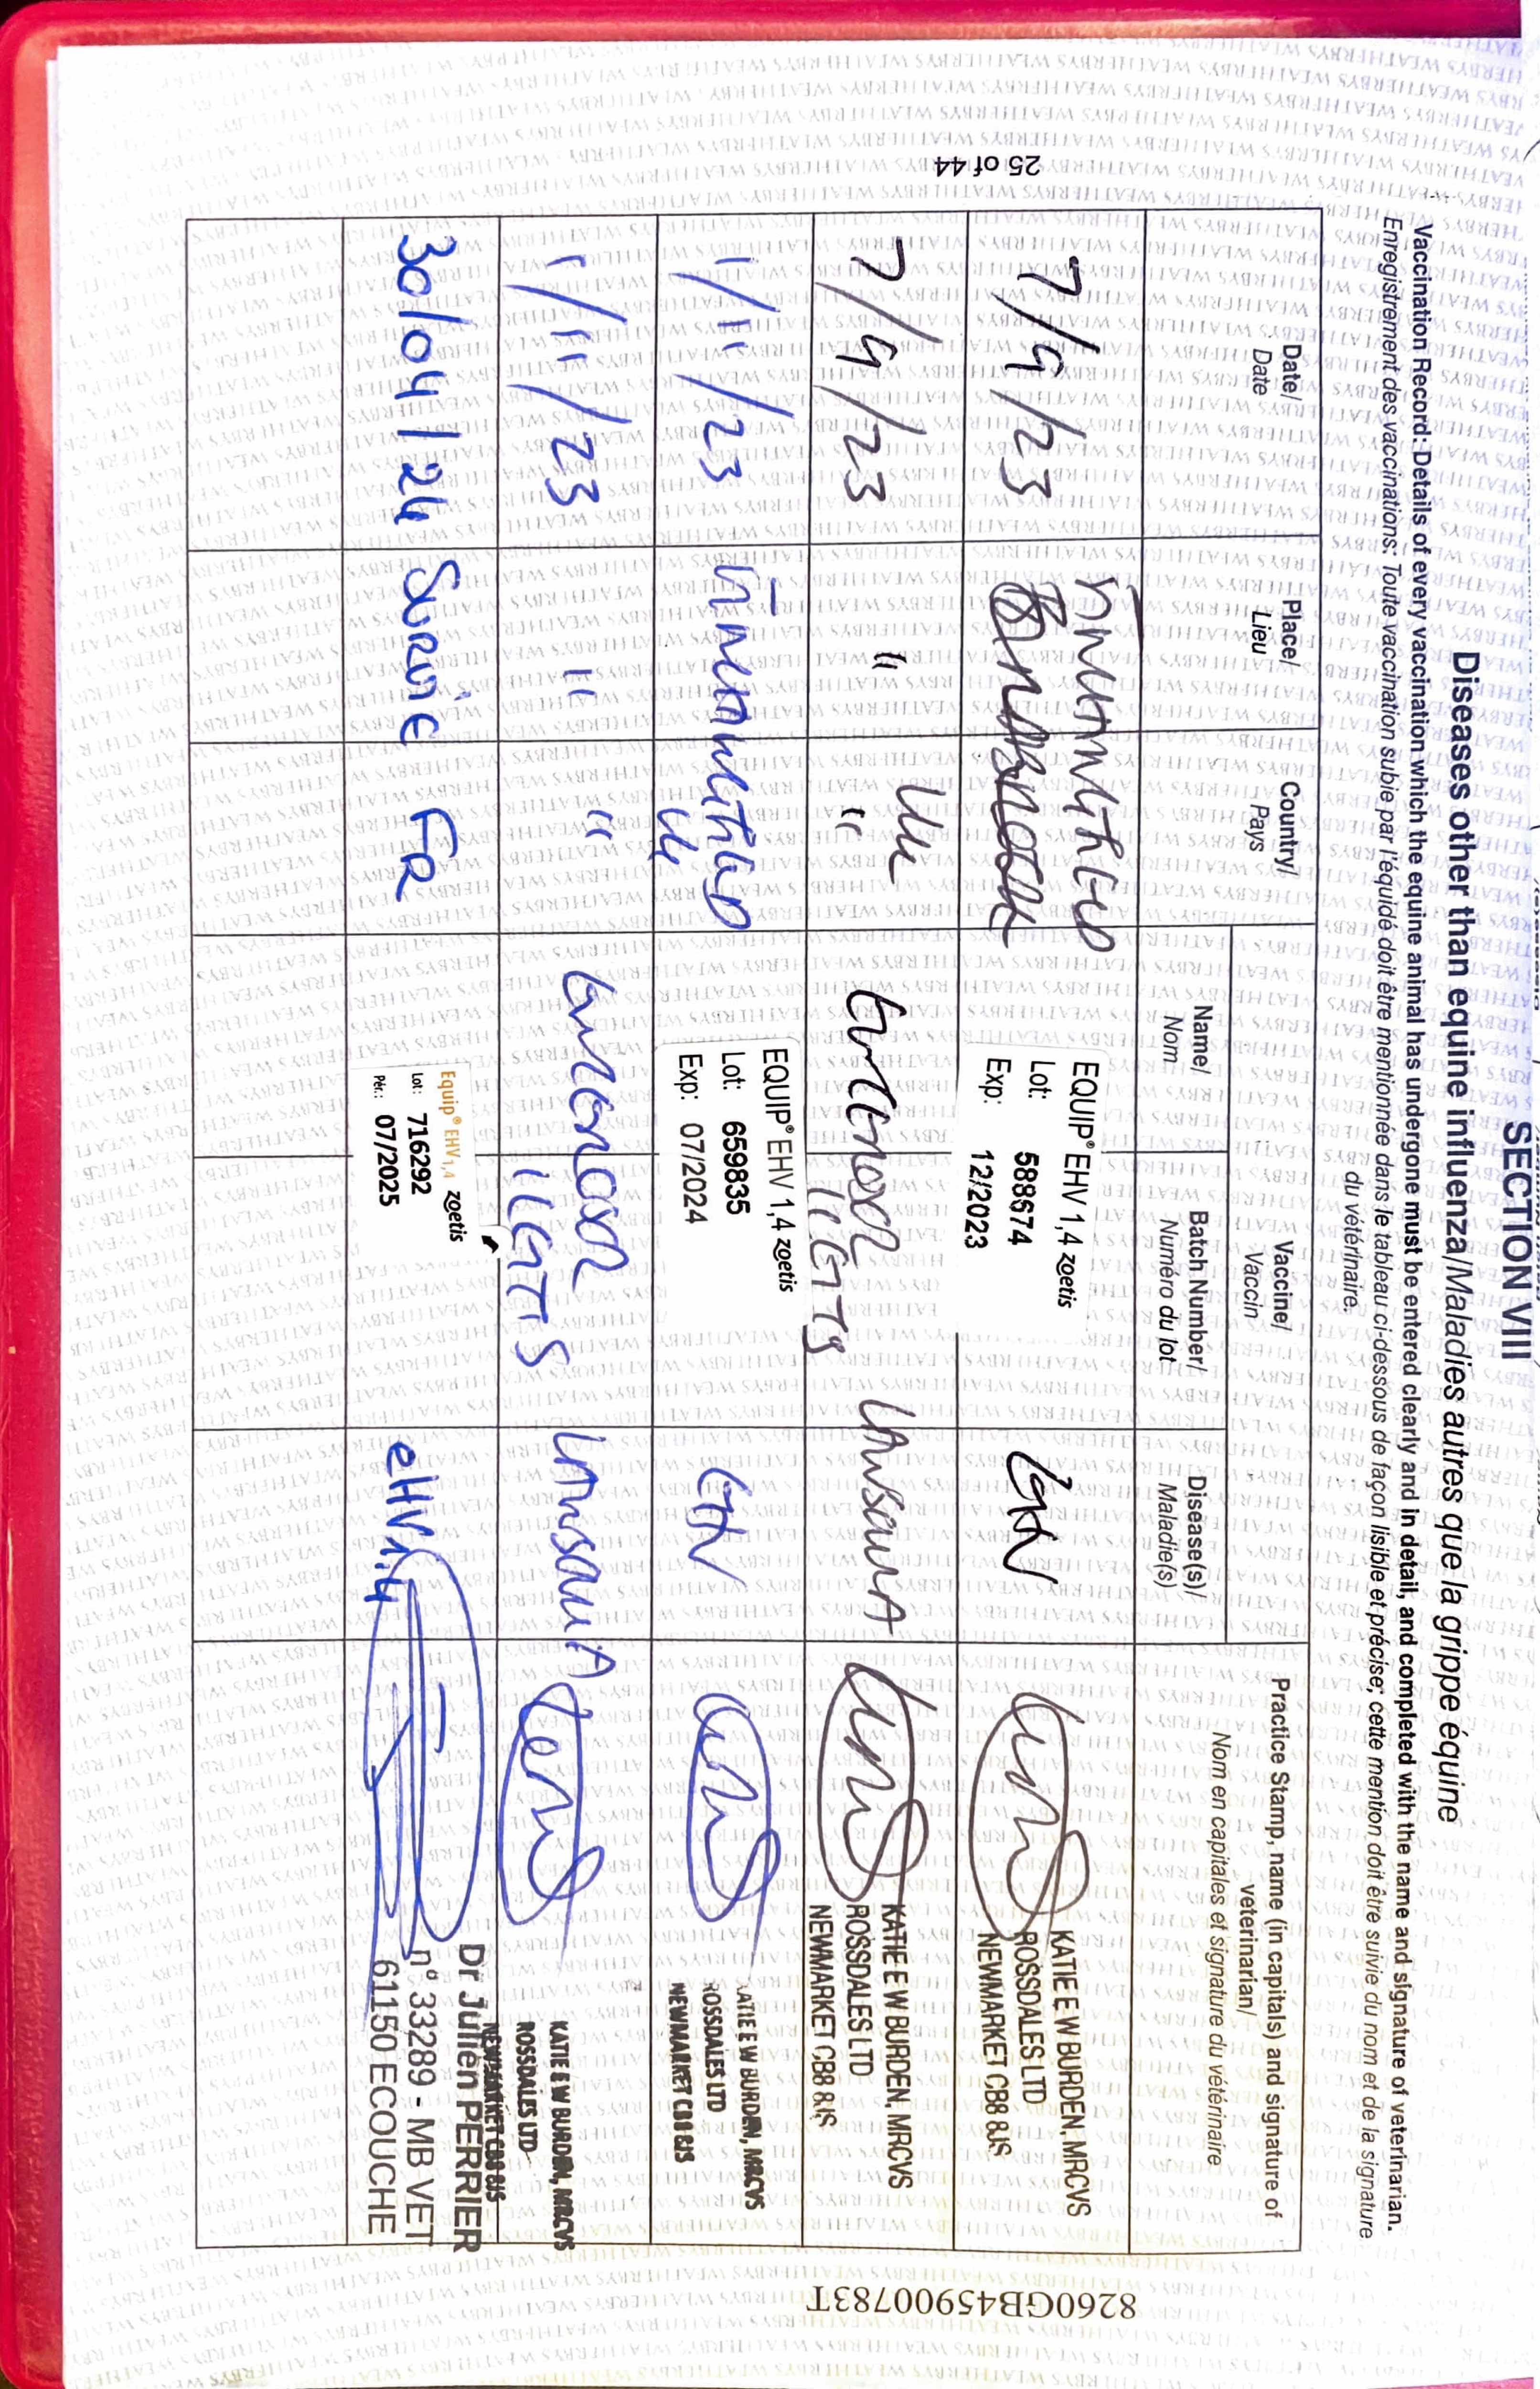 SECTION VIII
Diseases other than equine influenza/Maladies autres que la grippe équine
Vaccination Record: Details of every vaccination which the equine animal has undergone must be entered clearly and in detail, and completed with the name and signature of veterinarian.
Enregistrement des vaccinations: Toute vaccination subie par l'équidé doit être mentionnée dans le tableau ci-dessous de façon lisible et précise; cette mention doit être suivie du nom et de la signature
du vétérinaire.
Date/
Date
Place/
Lieu
Country/
Pays
Vaccine/
Vaccin
Name/
Nom
Batch Number/
Numéro du lot
Disease(s)/
Maladie(s)
Practice Stamp, name (in capitals) and signature of
veterinarian/
Nom en capitales et signature du vétérinaire
7/9/23
EQUIP® EHV 1,4 zoetis
Lot: 588674
Exp: 12/2023
EHV
KATIE E W BURDEN, MRCVS
ROSSDALES LTD
NEWMARKET CB8 8JS
7/9/23
"
UK
"
KATIE E W BURDEN, MRCVS
ROSSDALES LTD
NEWMARKET CB8 8JS
1/11/23
UK
EQUIP® EHV 1,4 zoetis
Lot: 659835
Exp: 07/2024
EHV
KATIE E W BURDEN, MRCVS
ROSSDALES LTD
NEWMARKET CB8 8JS
1/11/23
"
"
KATIE E W BURDEN, MRCVS
ROSSDALES LTD
NEWMARKET CB8 8JS
30/04/24
SURVIE
FR
Equip® EHV1,4 zoetis
Lot: 716292
Pér.: 07/2025
eHV1,4
Dr Julien PERRIER
n° 33289 - MB VET
61150 ECOUCHE
25 of 44
8260GB459000783T